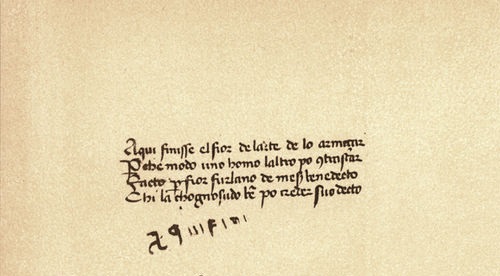 Aqui finisse el fior de larte de lo armiçar
E che modo uno homo laltro po 9tristar
Facto p fior furlano de mess benedecto
Chi la chognosudo be po creder suo decto